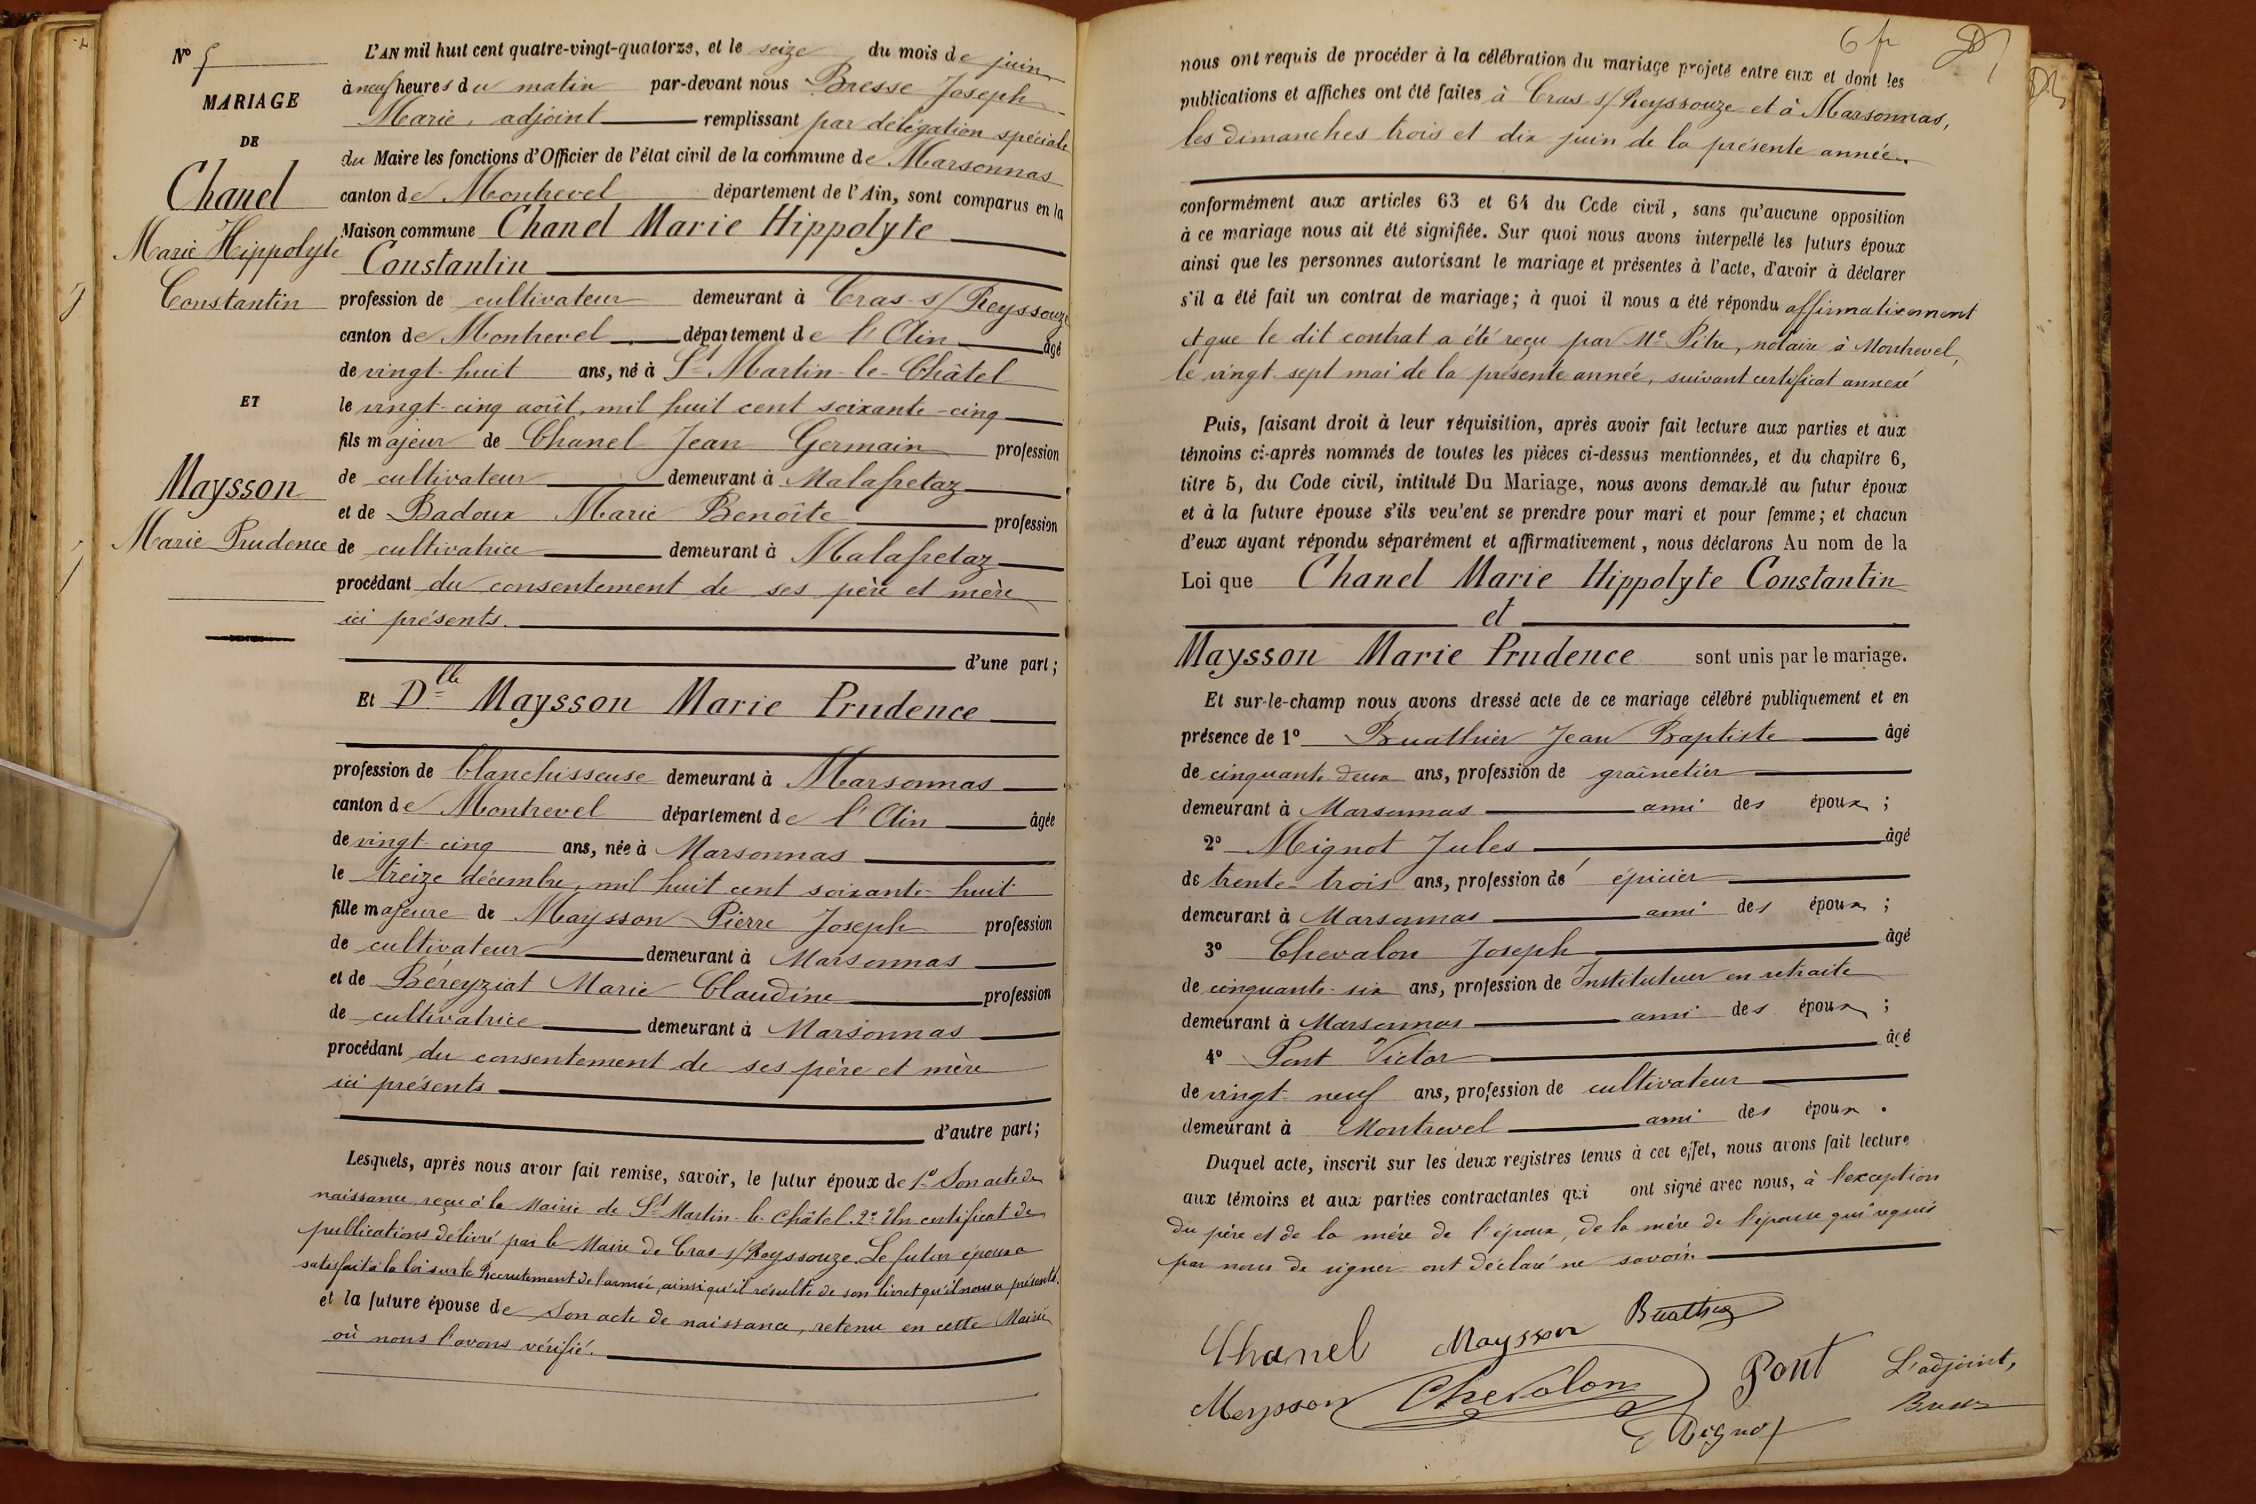 N° 5
MARIAGE
DE
Chanel
Marie Hippolyte
Constantin
ET
Maysson
Marie Prudence
L'AN mil huit cent quatre-vingt-quatorze, et le seize du mois de juin
à neuf heures du matin par-devant nous Bresse Joseph
Marie, adjoint remplissant par délégation spéciale
du Maire les fonctions d'Officier de l'état civil de la commune de Marsonnas
canton de Montrevel département de l'Ain, sont comparus en la
Maison commune Chanel Marie Hippolyte
Constantin
profession de cultivateur demeurant à Cras-s/Reyssouze
canton de Montrevel département de l'Ain âgé
de vingt-huit ans, né à St Martin-le-Châtel
le vingt-cinq août, mil huit cent soixante-cinq
fils majeur de Chanel Jean Germain profession
de cultivateur demeurant à Malafretaz
et de Badoux Marie Benoîte profession
de cultivatrice demeurant à Malafretaz
procédant du consentement de ses père et mère
ici présents.
d'une part;
Et Dlle Maysson Marie Prudence
profession de blanchisseuse demeurant à Marsonnas
canton de Montrevel département de l'Ain âgée
de vingt-cinq ans, née à Marsonnas
le treize décembre, mil huit cent soixante-huit
fille majeure de Maysson Pierre Joseph profession
de cultivateur demeurant à Marsonnas
et de Béreyziat Marie Claudine profession
de cultivatrice demeurant à Marsonnas
procédant du consentement de ses père et mère
ici présents
d'autre part;
Lesquels, après nous avoir fait remise, savoir, le futur époux de 1° Son acte de
naissance reçu à la Mairie de St Martin-le-Châtel. 2° Un certificat de
publications délivré par le Maire de Cras-s/Reyssouze. Le futur époux a
satisfait à la loi sur le Recrutement de l'armée, ainsi qu'il résulte de son livret qu'il nous a présenté.
et la future épouse de Son acte de naissance, retenu en cette Mairie
où nous l'avons vérifié.
6 fr
nous ont requis de procéder à la célébration du mariage projeté entre eux et dont les
publications et affiches ont été faites à Cras-s/Reyssouze et à Marsonnas,
les dimanches trois et dix juin de la présente année.
conformément aux articles 63 et 64 du Code civil, sans qu'aucune opposition
à ce mariage nous ait été signifiée. Sur quoi nous avons interpellé les futurs époux
ainsi que les personnes autorisant le mariage et présentes à l'acte, d'avoir à déclarer
s'il a été fait un contrat de mariage; à quoi il nous a été répondu affirmativement
et que le dit contrat a été reçu par Me Pitre, notaire à Montrevel,
le vingt-sept mai de la présente année, suivant certificat annexé
Puis, faisant droit à leur réquisition, après avoir fait lecture aux parties et aux
témoins ci-après nommés de toutes les pièces ci-dessus mentionnées, et du chapitre 6,
titre 5, du Code civil, intitulé Du Mariage, nous avons demandé au futur époux
et à la future épouse s'ils veu'ent se prendre pour mari et pour femme; et chacun
d'eux ayant répondu séparément et affirmativement, nous déclarons Au nom de la
Loi que Chanel Marie Hippolyte Constantin
et
Maysson Marie Prudence sont unis par le mariage.
Et sur-le-champ nous avons dressé acte de ce mariage célébré publiquement et en
présence de 1° Buathier Jean Baptiste âgé
de cinquante-deux ans, profession de grainetier
demeurant à Marsonnas ami des époux;
2° Mignot Jules âgé
de trente-trois ans, profession de épicier
demeurant à Marsonnas ami des époux;
3° Chevalon Joseph âgé
de cinquante-six ans, profession de Instituteur en retraite
demeurant à Marsonnas ami des époux;
4° Pont Victor âgé
de vingt-neuf ans, profession de cultivateur
demeurant à Montrevel ami des époux.
Duquel acte, inscrit sur les deux registres tenus à cet effet, nous avons fait lecture
aux témoins et aux parties contractantes qui ont signé avec nous, à l'exception
du père et de la mère de l'époux, de la mère de l'épouse qui requis
par nous de signer ont déclaré ne savoir.
Chanel Maysson Buathier
Meysson Chevalon Pont L'adjoint,
Mignot Bresse